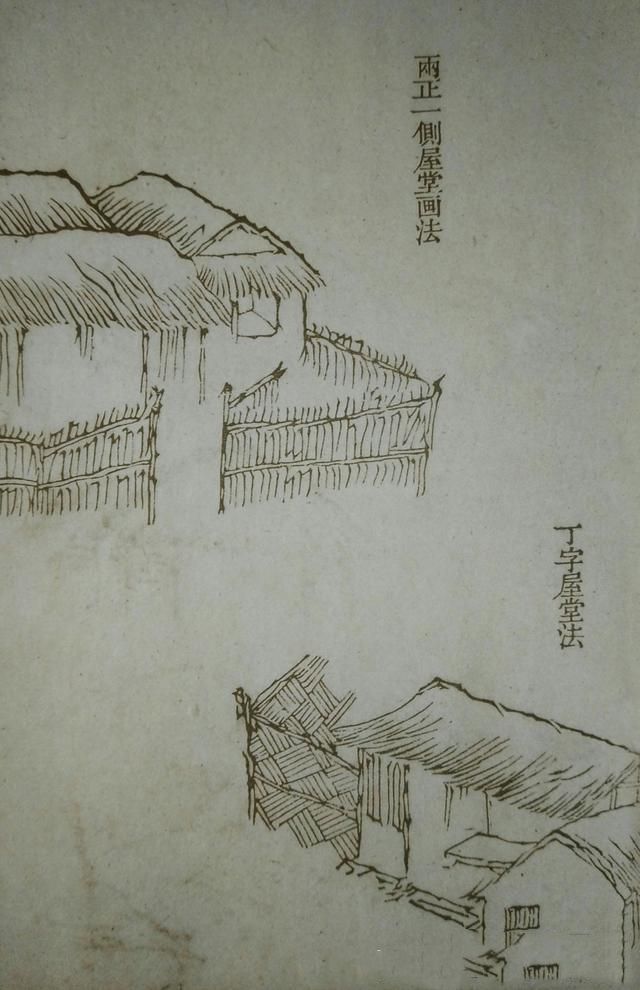 兩正一側屋堂画法
丁字屋堂法